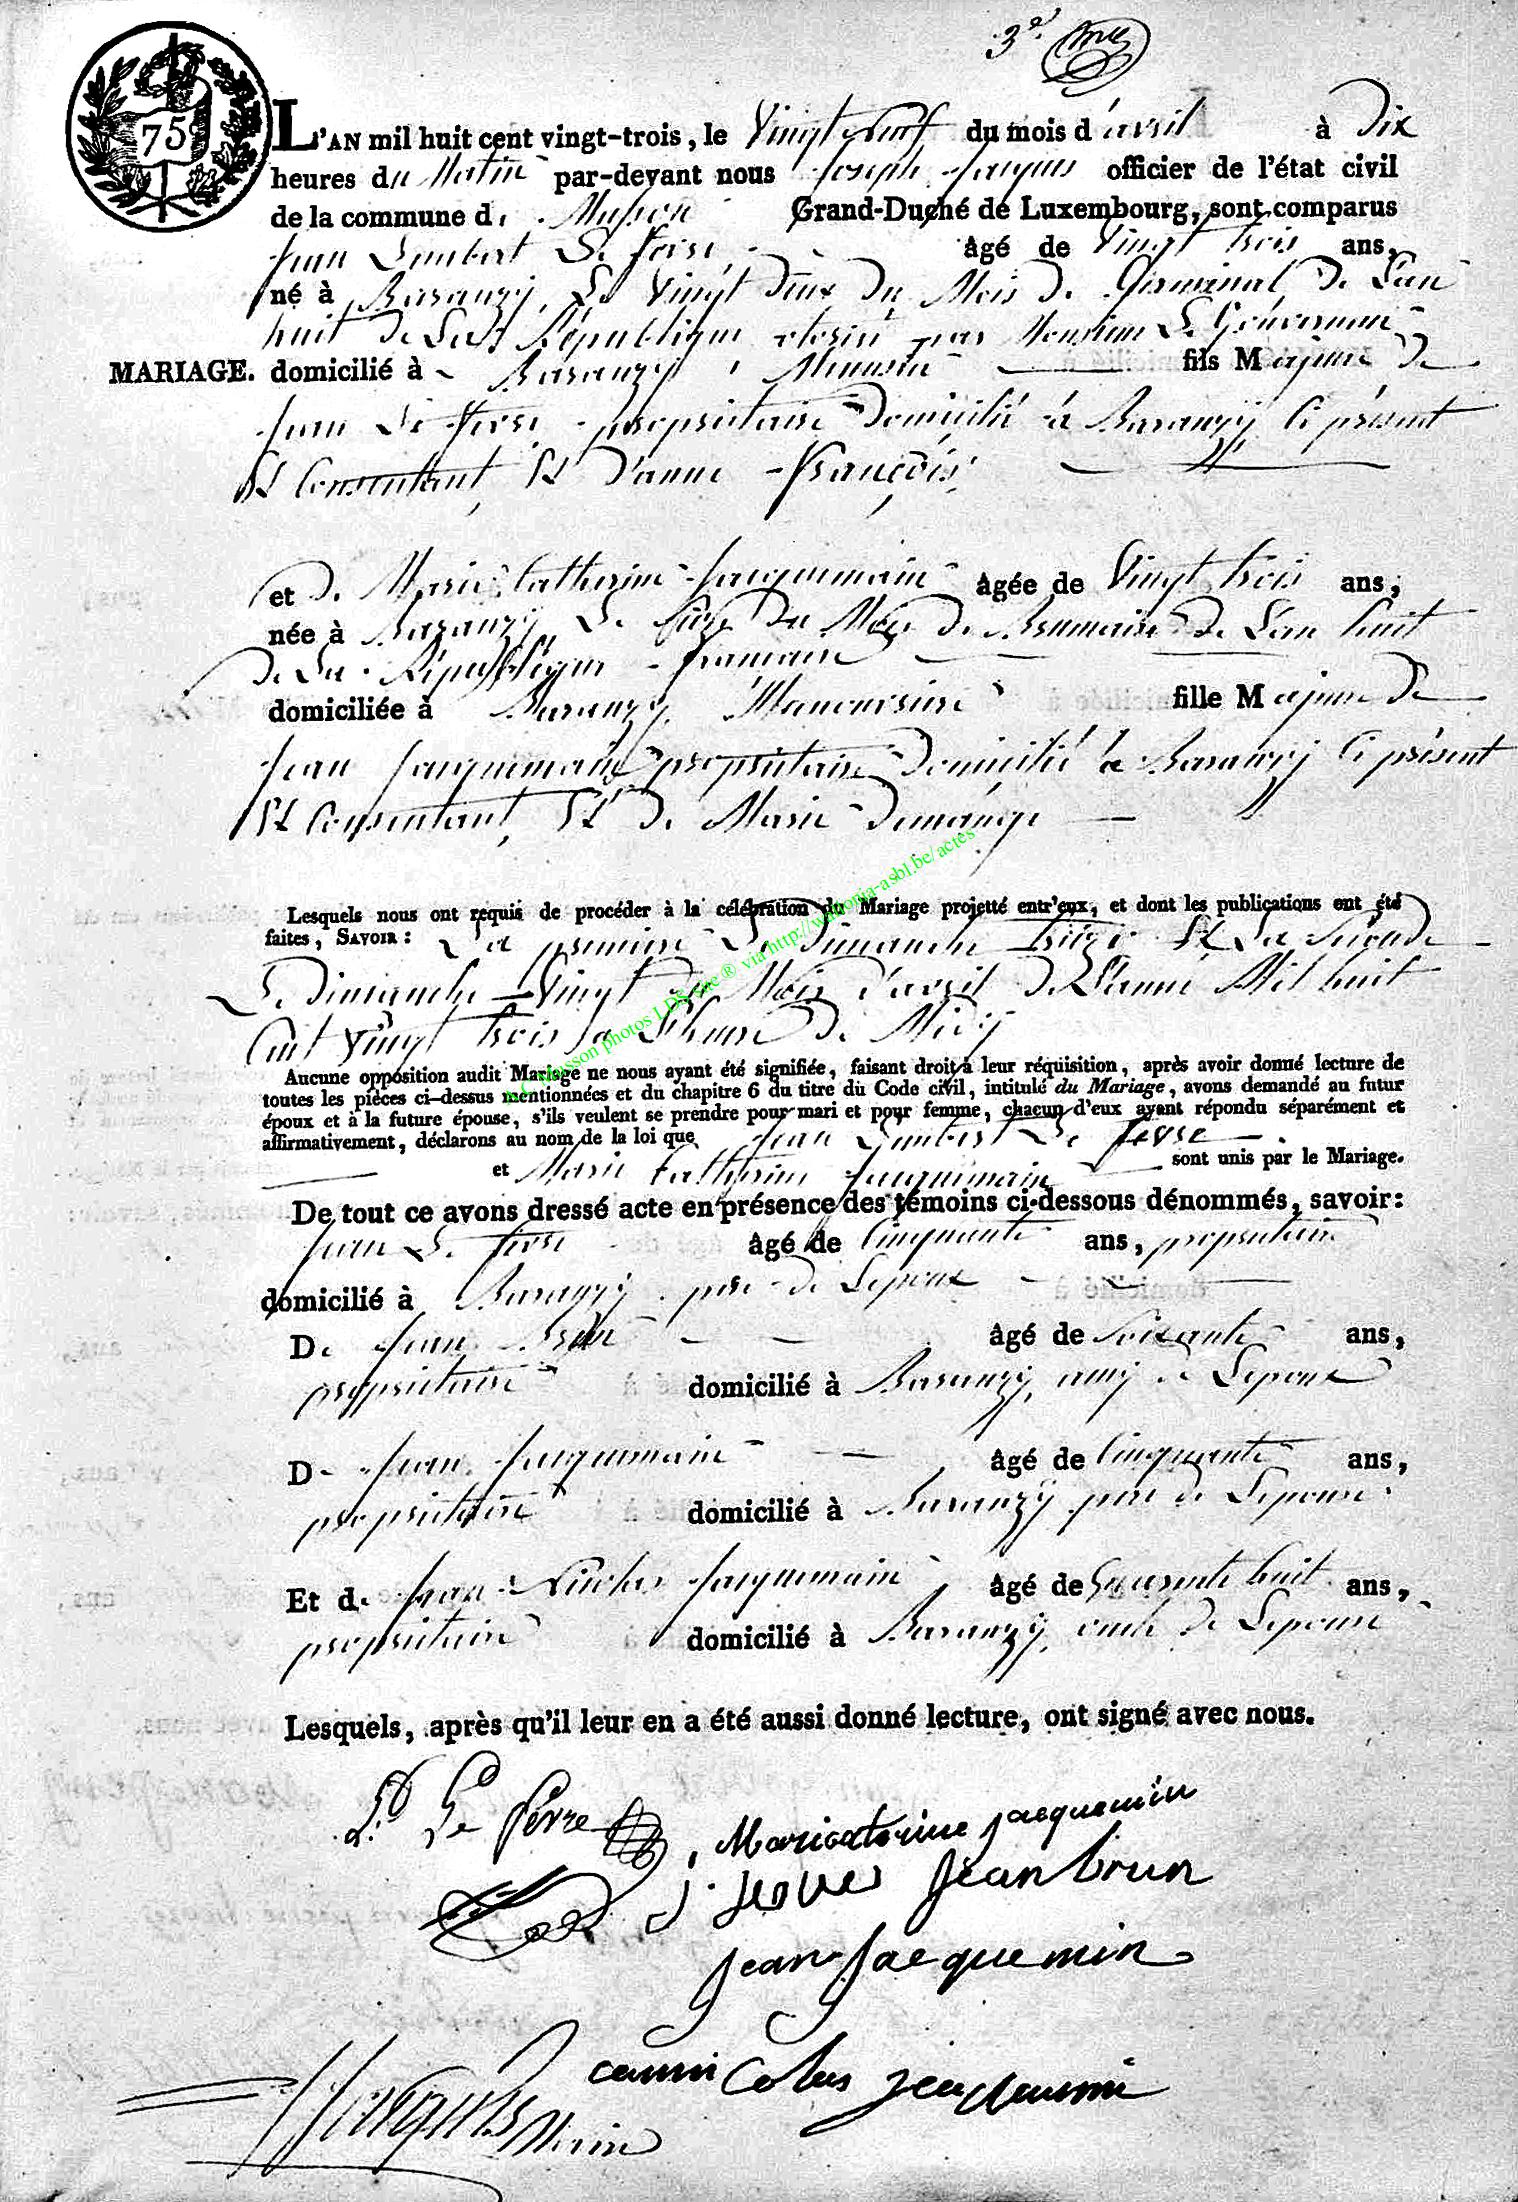 3e
75
L'AN mil huit cent vingt-trois, le Vingt neuf du mois d'avril à Dix
heures du Matin par-devant nous Joseph Jacques officier de l'état civil
de la commune de Musson Grand-Duché de Luxembourg, sont comparus
Jean Lambert Le fevre âgé de Vingt trois ans,
né à Baranzy, Le Vingt deux Du Mois De Germinal De L'an
huit De La République par Monsieur Le Gouverneur
MARIAGE. domicilié à Baranzy, Menusié fils Majeur De
Jean Le fevre propriétaire Domicilié à Baranzy Ci présent
Et Consentant, Et D'anne François,
et De Marie Catherine Jacquemain âgée de Vingt trois ans,
née à Baranzy Le Du Mois De Brumaire De L'an huit
De La République française
domiciliée à Baranzy, fille Majeure De
Jean Jacquemain propriétaire Domicilié à Baranzy Ci présent
Et Consentant, Et De Marie Demange
Lesquels nous ont requis de procéder à la célébration du Mariage projetté entr'eux, et dont les publications ont été
faites, SAVOIR : La premiere Le Dimanche treize Et La Seconde
Le Dimanche Vingt du Mois d'avril De L'anné Mil huit
Cent Vingt trois a L'heure De Midy
Aucune opposition audit Mariage ne nous ayant été signifiée, faisant droit à leur réquisition, après avoir donné lecture de
toutes les pièces ci-dessus mentionnées et du chapitre 6 du titre du Code civil, intitulé du Mariage, avons demandé au futur
époux et à la future épouse, s'ils veulent se prendre pour mari et pour femme, chacun d'eux ayant répondu séparément et
affirmativement, déclarons au nom de la loi que Jean Lambert Le fevre
et Marie Catherine Jacquemain sont unis par le Mariage.
De tout ce avons dressé acte en présence des témoins ci-dessous dénommés, savoir:
Jean Le fevre âgé de Cinquante ans, propriétaire
domicilié à Baranzy père de L'epoux
De Jean Brun âgé de Soixante ans,
propriétaire domicilié à Baranzy, amy de L'epoux
De Jean Jacquemain âgé de Cinquante ans,
propriétaire domicilié à Baranzy père de L'epouse
Et de Jean Nicolas Jacquemain âgé de Quarante huit ans,
propriétaire domicilié à Baranzy, oncle De L'epouse
Lesquels, après qu'il leur en a été aussi donné lecture, ont signé avec nous.
Le févre
Maricaterine jacquemin
Jean brun
Jean Jacquemin
Jacques Maire
C Musson photos LDS site ® via http://wallonia-asbl.be/actes